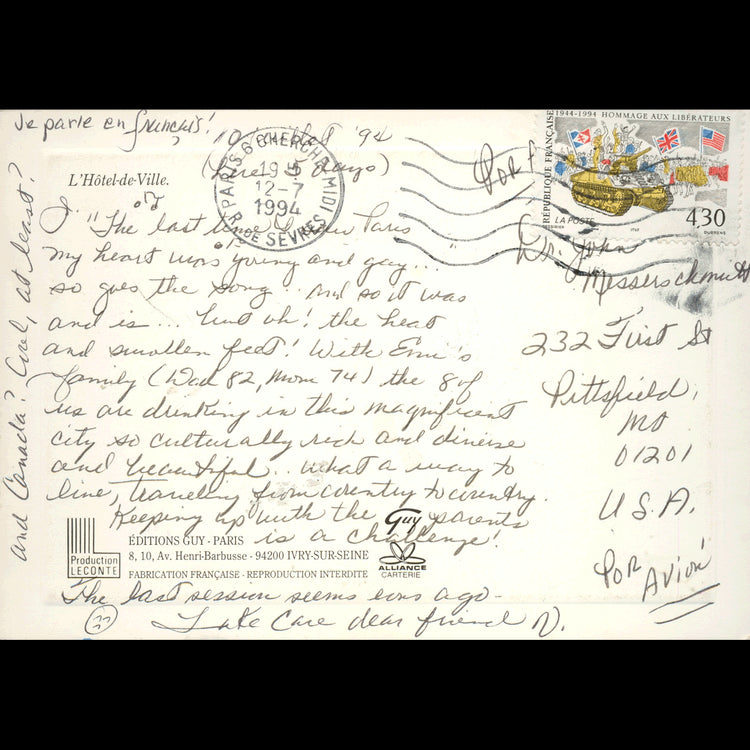 Je parle en français!
'94
L'Hôtel-de-Ville.
J. "The last time Paris
my heart was young and gay...
so goes the song.. And so it was
and is... but oh! the heat
and swollen feet! With
family (Dad 82, Mom 74) the 8 of
us are drinking in this magnificent
city so culturally rich and diverse
and beautiful.. what a way to
live, travelling from country to country.
Keeping up with the parents
is a challenge!
The last session seems eons ago-
Take Care dear friend N.
and Canada? Cool, at least?
PARIS 6 CHERCHE MIDI
19 5
12-7
1994
R. DE SEVRES
1944-1994 HOMMAGE AUX LIBÉRATEURS
RÉPUBLIQUE FRANÇAISE
LA POSTE
4,30
Dr. John
Messerschmitt
232 First St
Pittsfield,
01201
U.S.A.
POR
AVION
Production
LECONTE
ÉDITIONS GUY - PARIS
8, 10, Av. Henri-Barbusse - 94200 IVRY-SUR-SEINE
FABRICATION FRANÇAISE - REPRODUCTION INTERDITE
Guy
ALLIANCE
CARTERIE